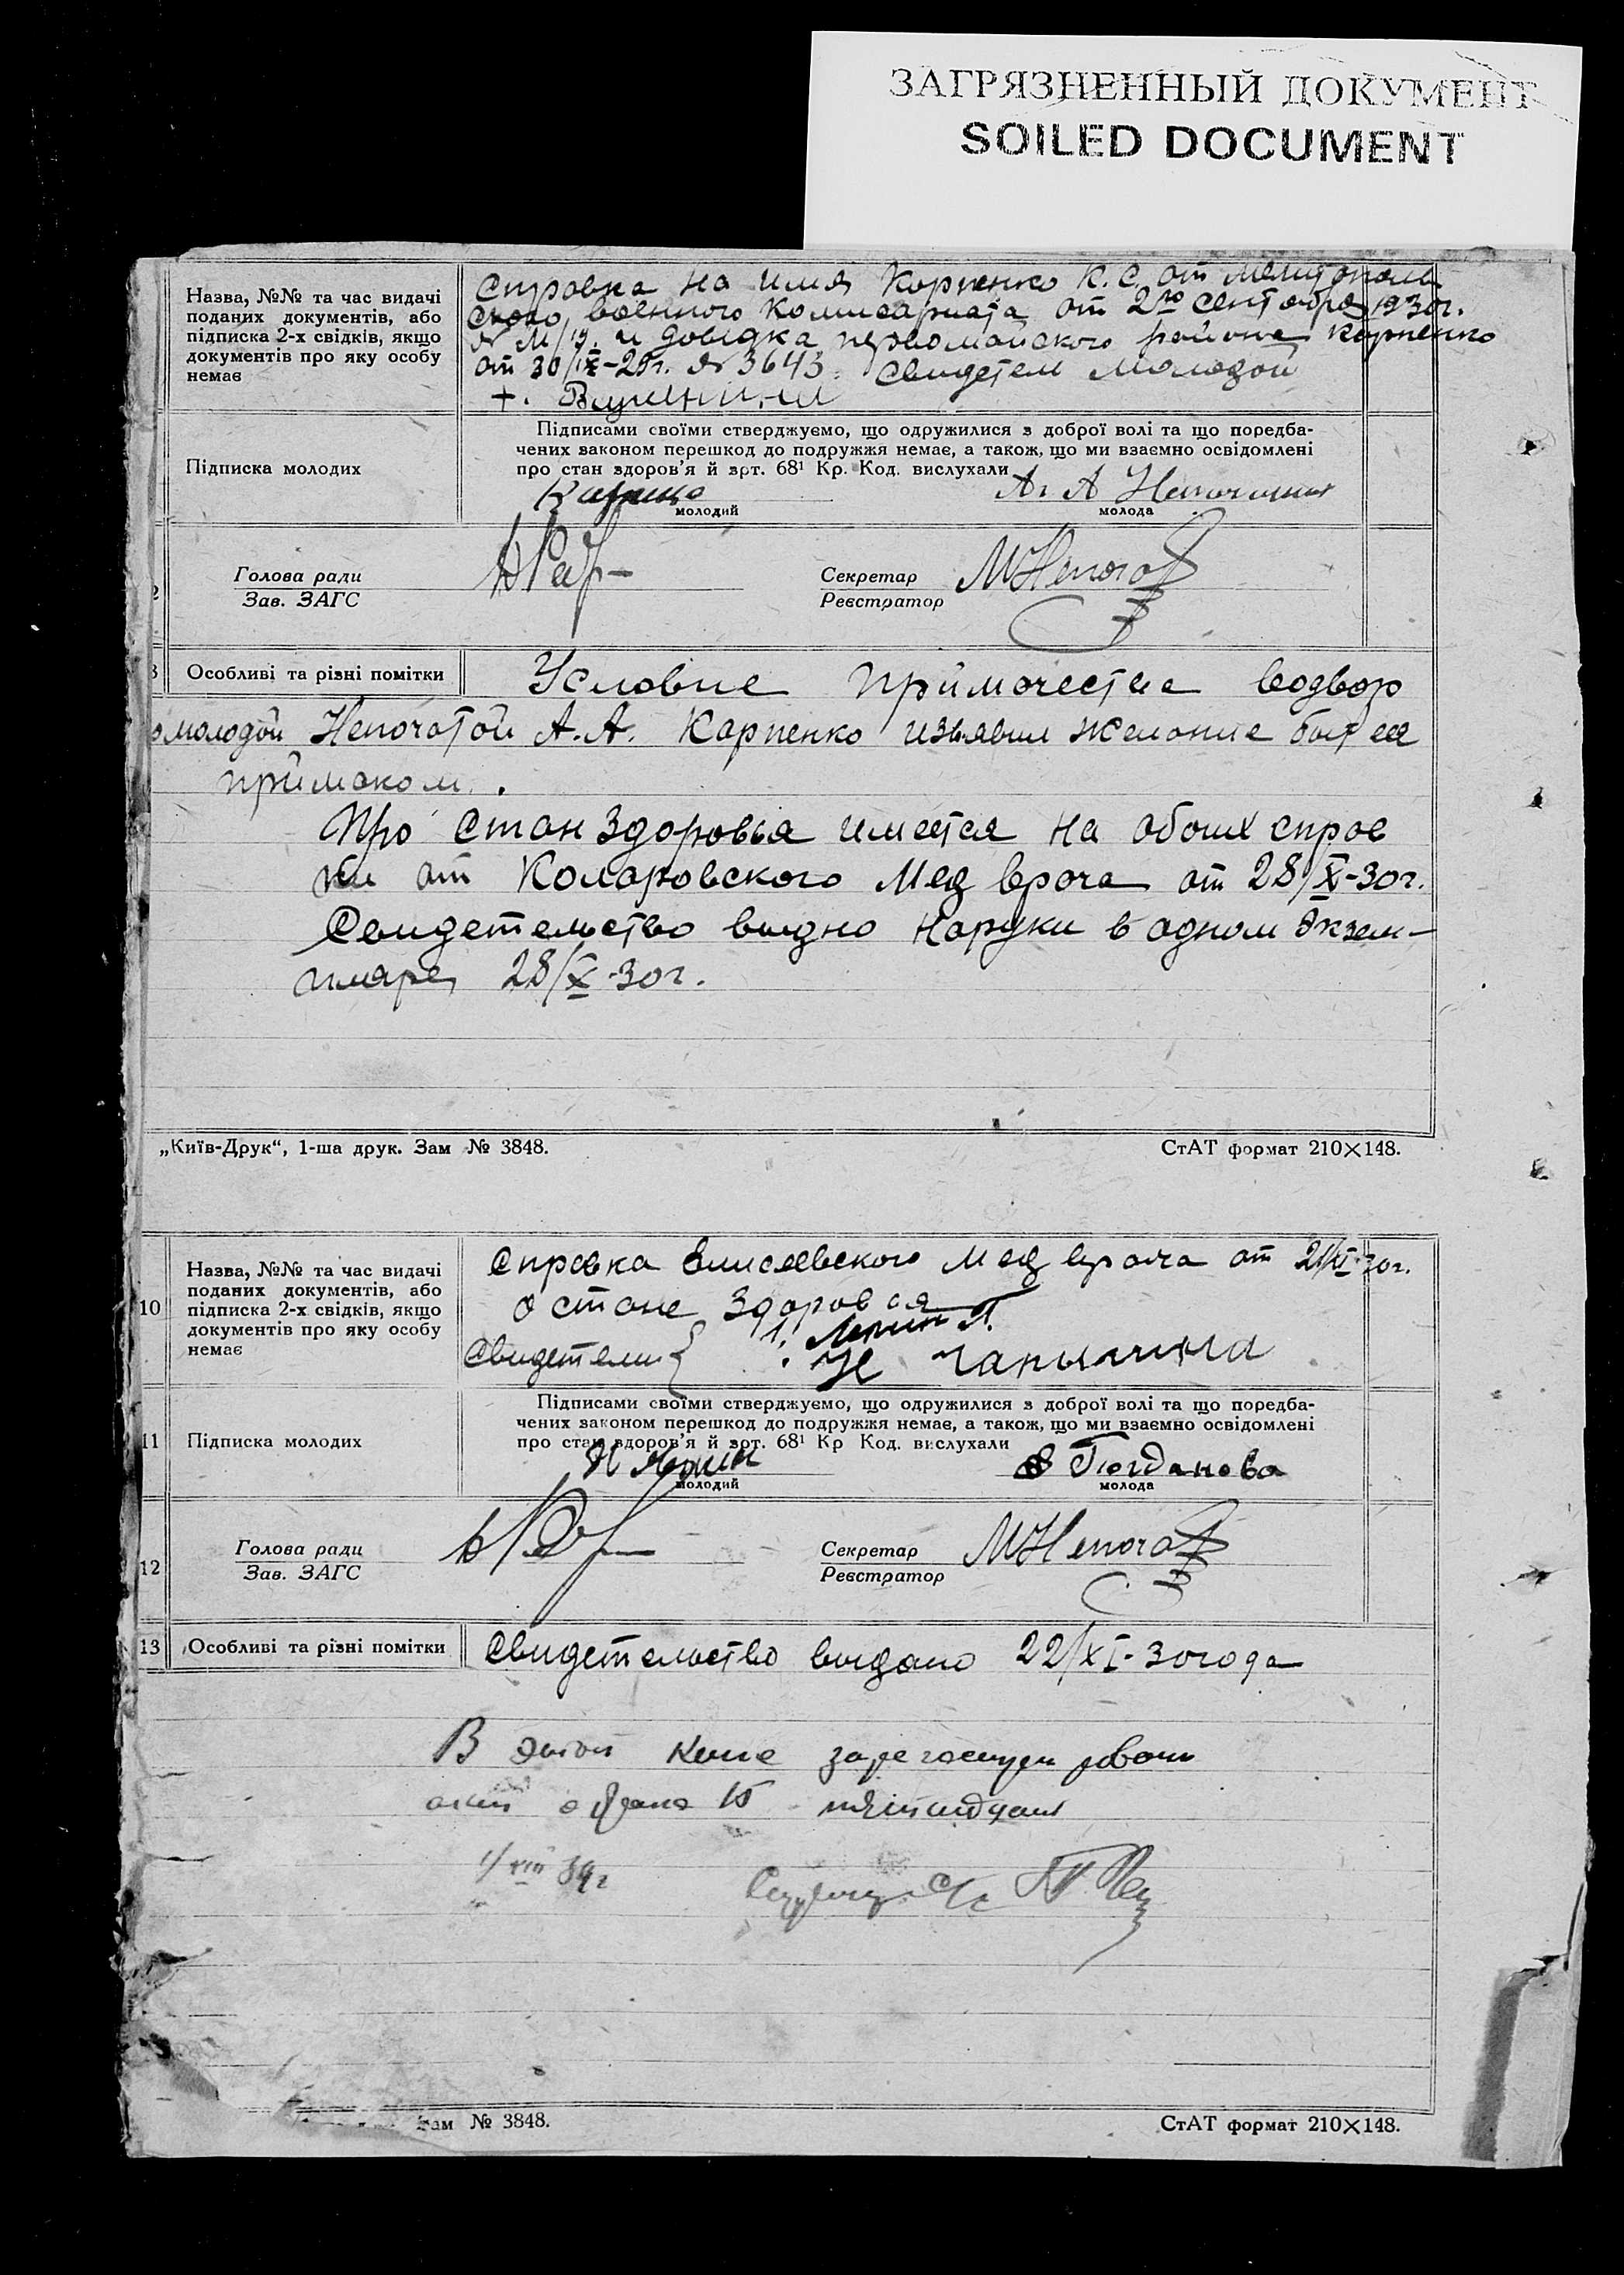 ЗАГРЯЗНЕННЫЙ ДОКУМЕНТ
SOILED DOCUMENT
Назва, №№ та час видачі
поданих документів, або
підписка 2-х свідків, якщо
документів про яку особу
немає
Справка на имя Корпенко К. С. от Мелитополь
ского военного Комисариата от 2го сентября 1930г.
и довидка первомайского района Карпенко
от 30/IX-29г. № 3643. Свидетели Молодой
+.
Підписка молодих
Підписами своїми стверджуємо, що одружилися з доброї волі та що поредба-
чених законом перешкод до подружжя немає, а також, що ми взаємно освідомлені
про стан здоров'я й арт. 68¹ Кр. Код. вислухали
молодий
молода
2
Голова ради
Зав. ЗАГС
Секретар
Реєстратор
3
Особливі та різні помітки
Условие Приймачества водвор
молодой Непочатой А.А. Карпенко изъявил желание быт ея
приймаком.
Про Стан Здоровья имеется на обоих справ
ки от Коларовского Мед врача от 28/X-30г.
Свидетельство выдно наруки в одном Экзем-
пляре 28/X-30г.
„Київ-Друк“, 1-ша друк. Зам № 3848.
СтАТ формат 210×148.
10
Назва, №№ та час видачі
поданих документів, або
підписка 2-х свідків, якщо
документів про яку особу
немає
Справка Елисеевского Мед врача от 21/XI-30г.
о стане Здоровья
Свидетели
11
Підписка молодих
Підписами своїми стверджуємо, що одружилися з доброї волі та що поредба-
чених законом перешкод до подружжя немає, а також, що ми взаємно освідомлені
про стан здоров'я й арт. 68¹ Кр Код. вислухали
Богданова
молодий
молода
12
Голова ради
Зав. ЗАГС
Секретар
Реєстратор
13
Особливі та різні помітки
Свидетельство выдано 22/XI-30года
В этой Книге
1/VIII 39г
Зам № 3848.
СтАТ формат 210×148.